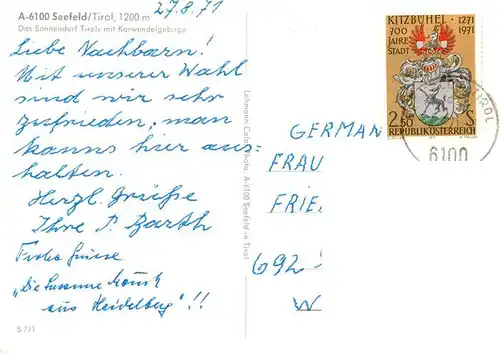 A-6100 Seefeld/Tirol, 1200 m
Das Sonnendorf Tirols mit Karwendelgebirge
27.8.71
Liebe Nachbarn!
Mit unserer Wahl
sind wir sehr
zufrieden; man
kanns hier aus-
halten.
Herzl. Grüße
Ihre P. Barth
"Die Susanne
aus Heidelberg"!!
S 7/1
A-6100 Seefeld in Tirol
KITZBÜHEL 1271
700 1971
JAHRE
STADT
2.50 S
REPUBLIK ÖSTERREICH
TIROL
6100
GERMAN
FRAU
FRIE
692
W